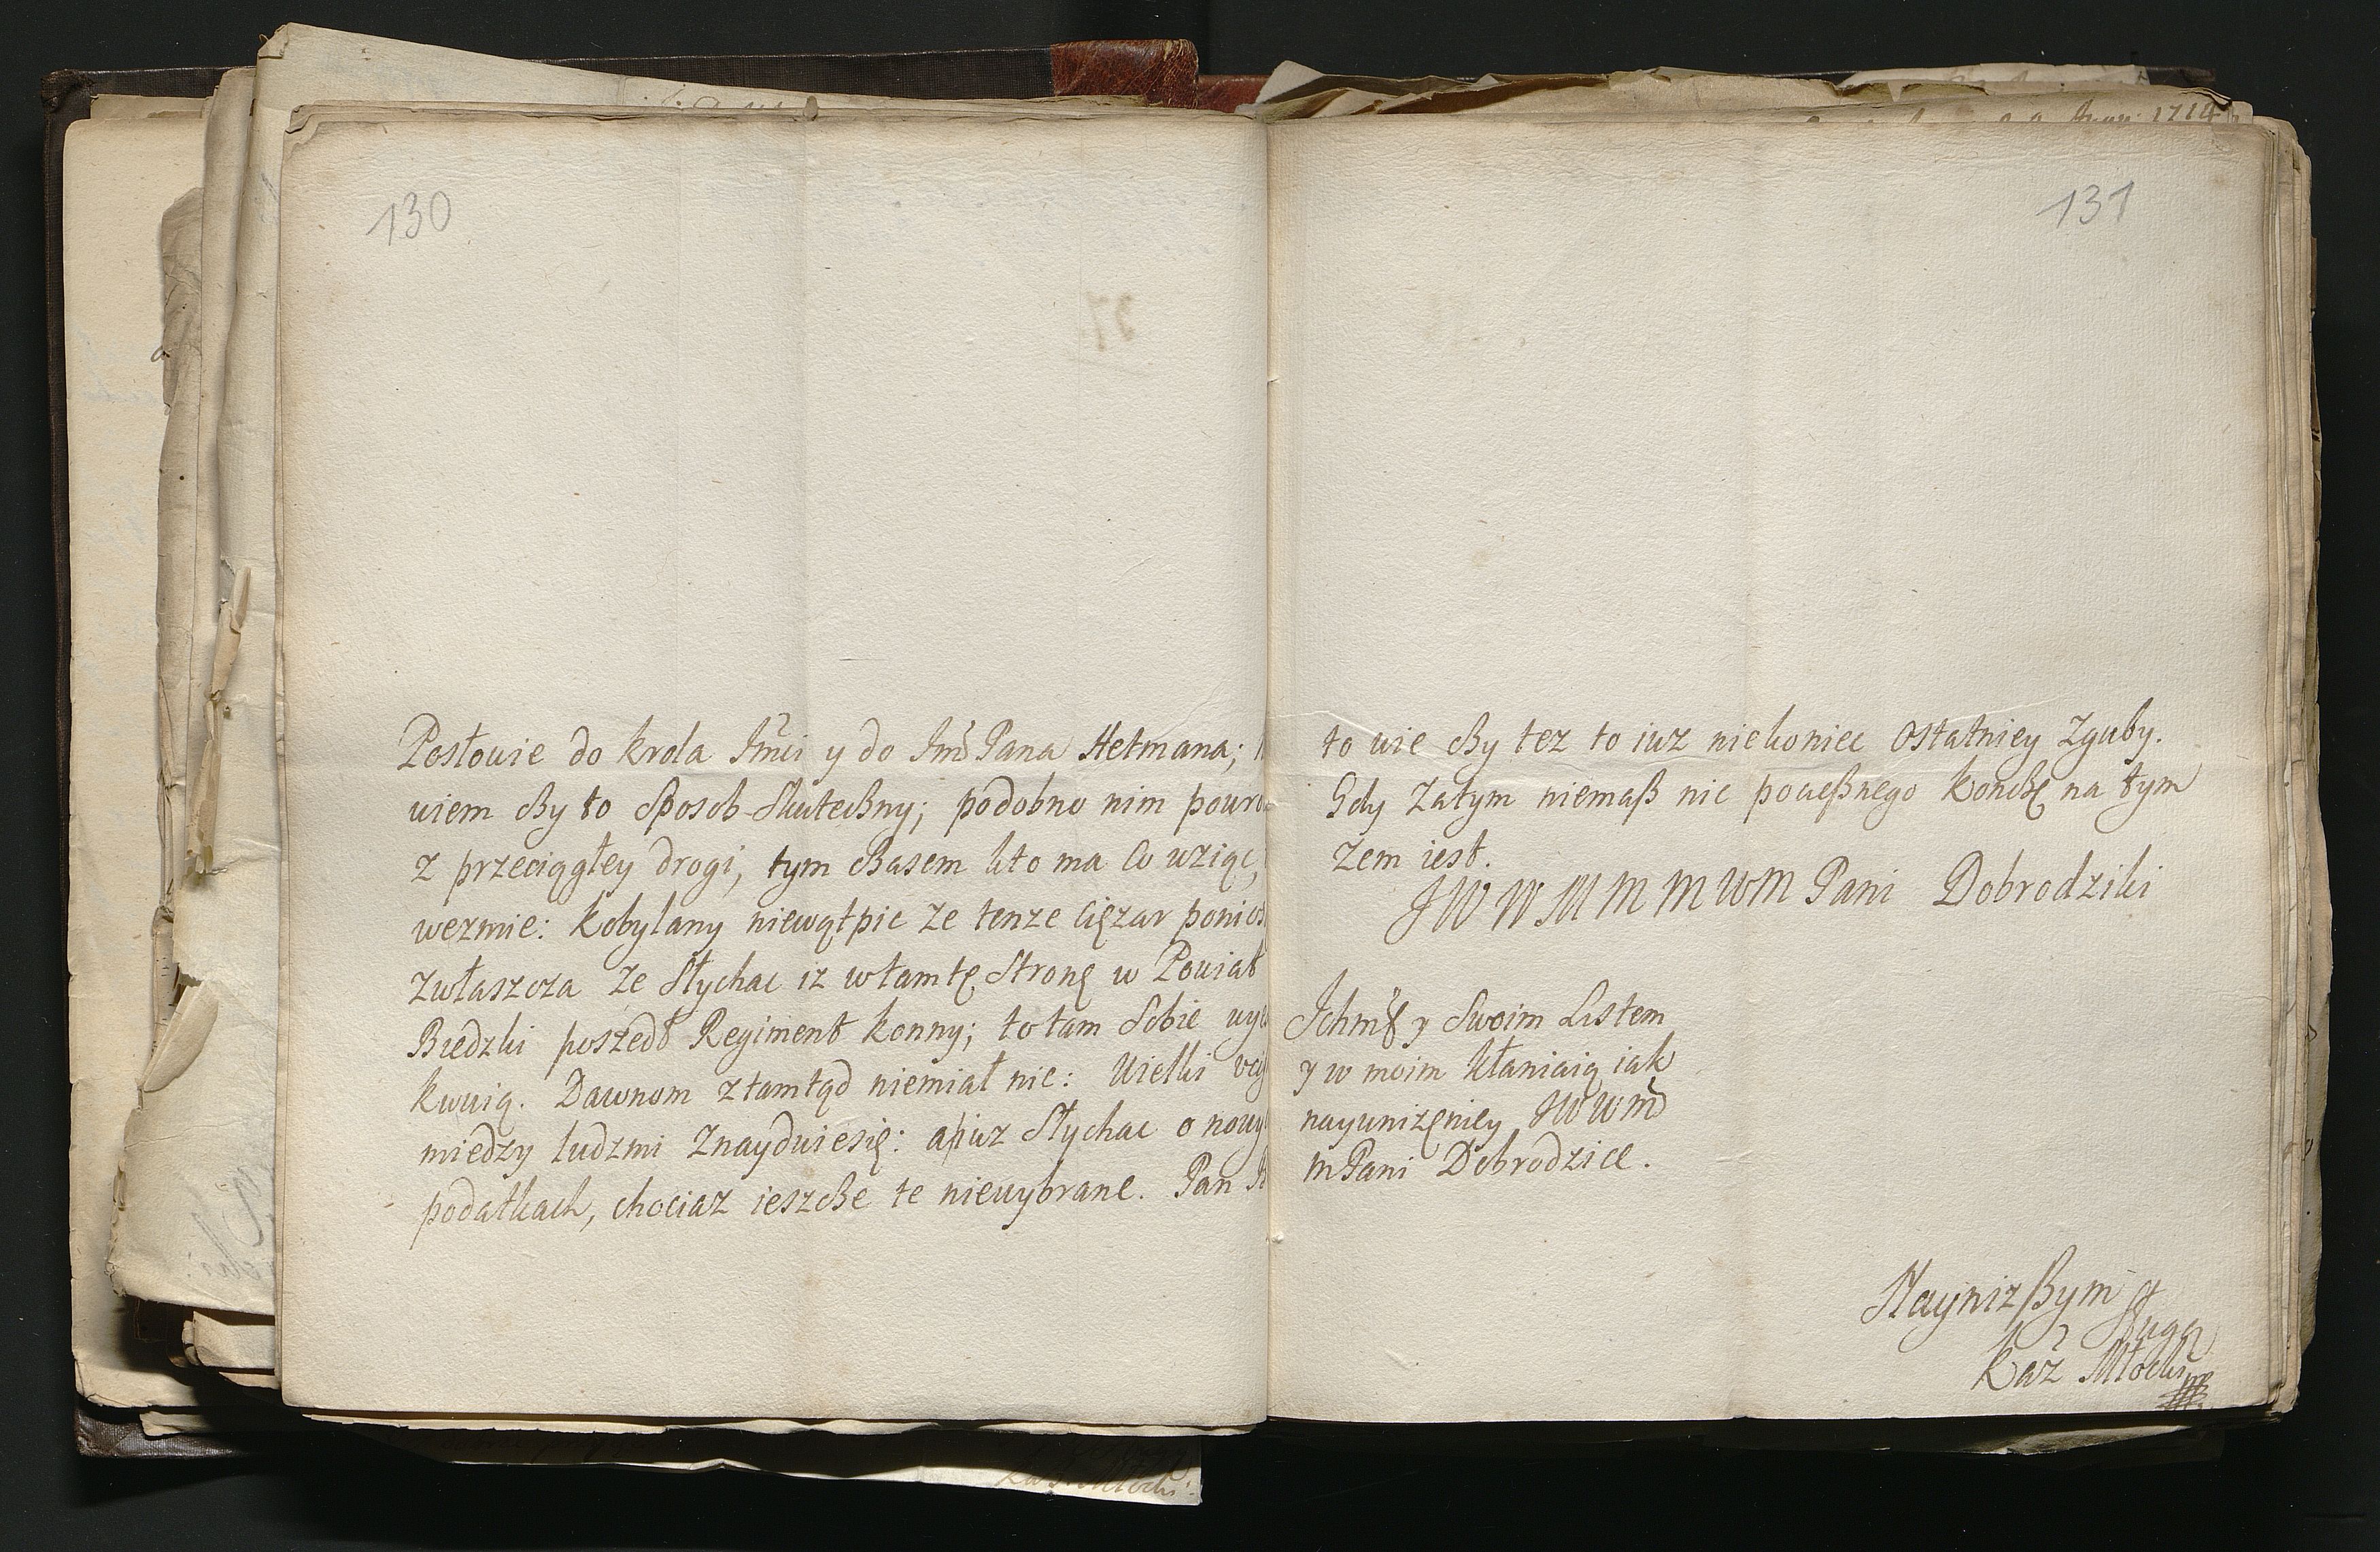 130
Posłowie do krola Jmci y do Jmp Pana Hetmana;
wiem czy to sposob skuteczny; podobno nim powro
z przeciągłey drogi, tym czasem kto ma co wziąc,
wezmie: Kobylany niewątpie ze tenze cięzar ponios
zwłaszcza ze słychac iz w tamtę stronę w Powiat
Biedzki poszedł Regiment konny; to tam sobie
kwuią. Dawnom ztamtąd niemiał nic: Wielki
miedzy ludzmi znayduiesię: a iuz słychac o nowy
podatkach, chociaz ieszcze te niewybrane. Pan
131
to wie czy tez to iuz niekoniec ostatniey zguby.
Gdy zatym niemasz nic pocieszнego konczę na tym
zem iest.
JWWMMMWM Pani Dobrodziki
Ichmć y swoim Listem
y w moim kłaniaią iak
nayunizęniey JWWM
mPani Dobrodzice.
Naynizszym sługą
Kaz Młocki